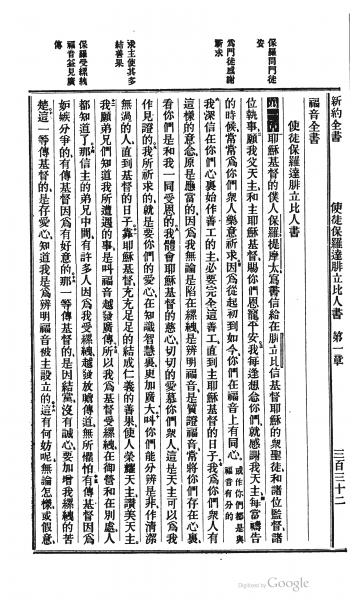 新約全書
使徒保羅達腓立比人書 第一章
三百三十二
福音全書
使徒保羅達腓立比人書
保羅問門徒安
爲門徒感謝祈求
求主使其多結善果
保羅受縲絏福音益見廣傳
第一章耶穌基督的僕人保羅提摩太寫書信給在腓立比信基督耶穌的衆聖徒和諸位監督諸
位執事願我父天主和主耶穌基督賜你們恩寵平安我每逢想念你們就感謝我天主每當禱告
的時候常常爲你們衆人樂意祈求因爲從起初到如今你們在福音上有同心或作你們都是與福音有分的
我深信在你們心裏始作善工的主必要完全這善工直到主耶穌基督的日子我爲你們衆人有
這樣的意念原是應當的因爲我無論是陷在縲絏是辨明福音是質證福音常將你們存在心裏
看你們是和我一同受恩的我體會耶穌基督的慈心切切的愛慕你們衆人這是天主可以爲我
作見證的我所祈求的就是要你們的愛心在知識智慧裏更加廣大叫你們能分辨是非作清潔
無過的人直到基督的日子靠耶穌基督充充足足的結成仁義的善果使人榮耀天主讚美天主
我願弟兄們知道我所遭遇的事是叫福音越發廣傳所以我爲基督受縲絏在御營和在別處人
都知道了那信主的弟兄中間有許多人因爲我受縲絏越發放膽傳道無所懼怕有傳基督因爲
妬嫉分爭的有傳基督因爲有好意的那一等傳基督的是因結黨沒有誠心要加增我縲絏的苦
楚這一等傳基督的是存愛心知道我是爲辨明福音被主設立的這有何妨呢無論怎樣或假意
Digitized by Google